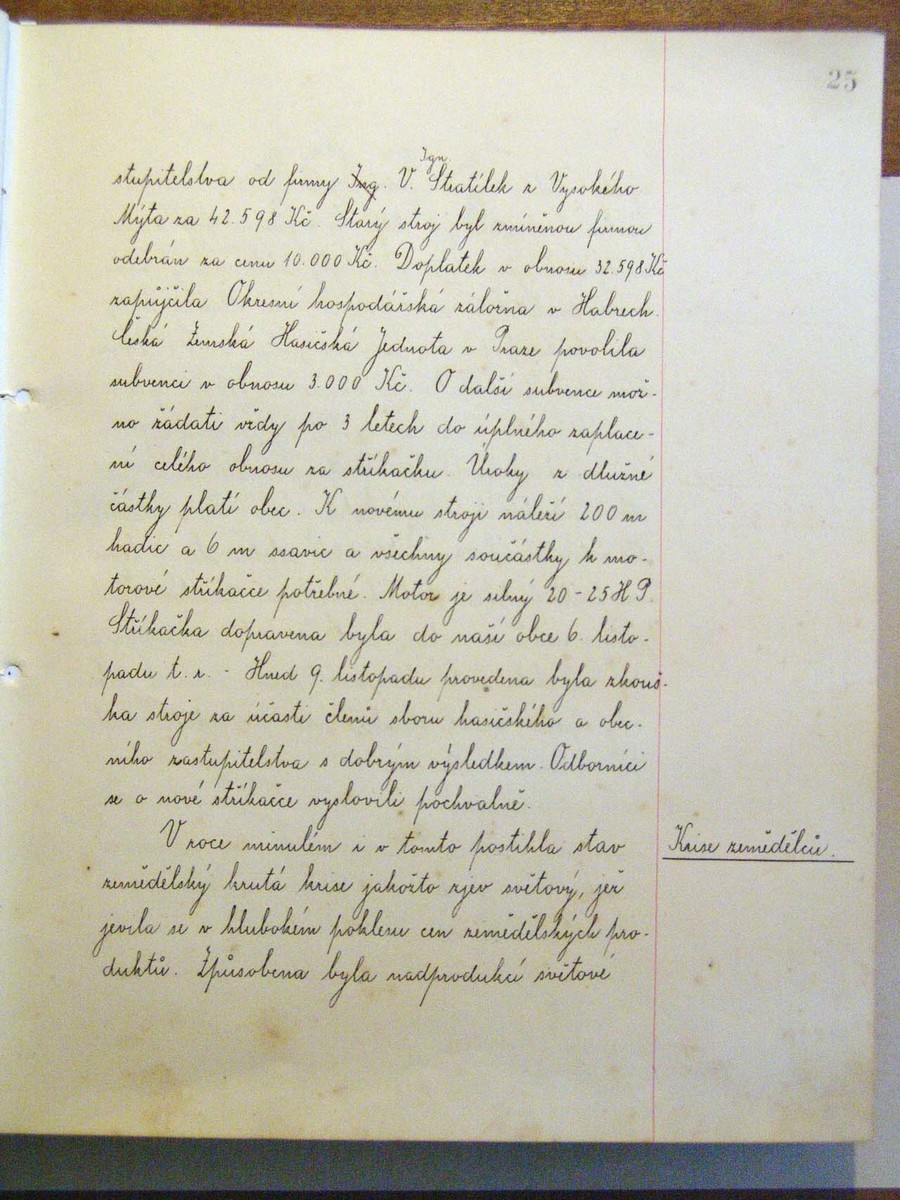 25
stupitelstva od firmy Ing. V. Ign. Stratílek z Vysokého
Mýta za 42.598 Kč. Starý stroj byl zmíněnou firmou
odebrán za cenu 10.000 Kč. Doplatek v obnosu 32.598 Kč
zapůjčila Okresní hospodářská záložna v Habrech.
Česká Zemská Hasičská Jednota v Praze povolila
subvenci v obnosu 3.000 Kč. O další subvence mož-
no žádati vždy po 3 letech do úplného zaplace-
ní celého obnosu za stříkačku. Úroky z dlužné
částky platí obec. K novému stroji náleží 200 m
hadic a 6 m ssavic a všechny součástky k mo-
torové stříkačce potřebné. Motor je silný 20-25 H P.
Stříkačka dopravena byla do naší obce 6. listo-
padu t. r. - Hned 9. listopadu provedena byla zkouš-
ka stroje za účasti členů sboru hasičského a obec-
ního zastupitelstva s dobrým výsledkem. Odborníci
se o nové stříkačce vyslovili pochvalně.
V roce minulém i v tomto postihla stav
Krise zemědělců.
zemědělský krutá krise jakožto zjev světový, jež
jevila se v hlubokém poklesu cen zemědělských pro-
duktů. Způsobena byla nadprodukcí světové